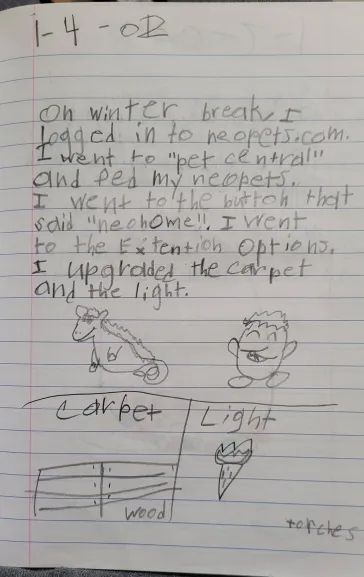 1-4-02
On winter break, I
logged in to neopets.com.
I went to "pet central"
and fed my neopets.
I went to the button that
said "neohome". I went
to the Extention Options.
I upgraded the carpet
and the light.
Carpet
Light
wood
torches